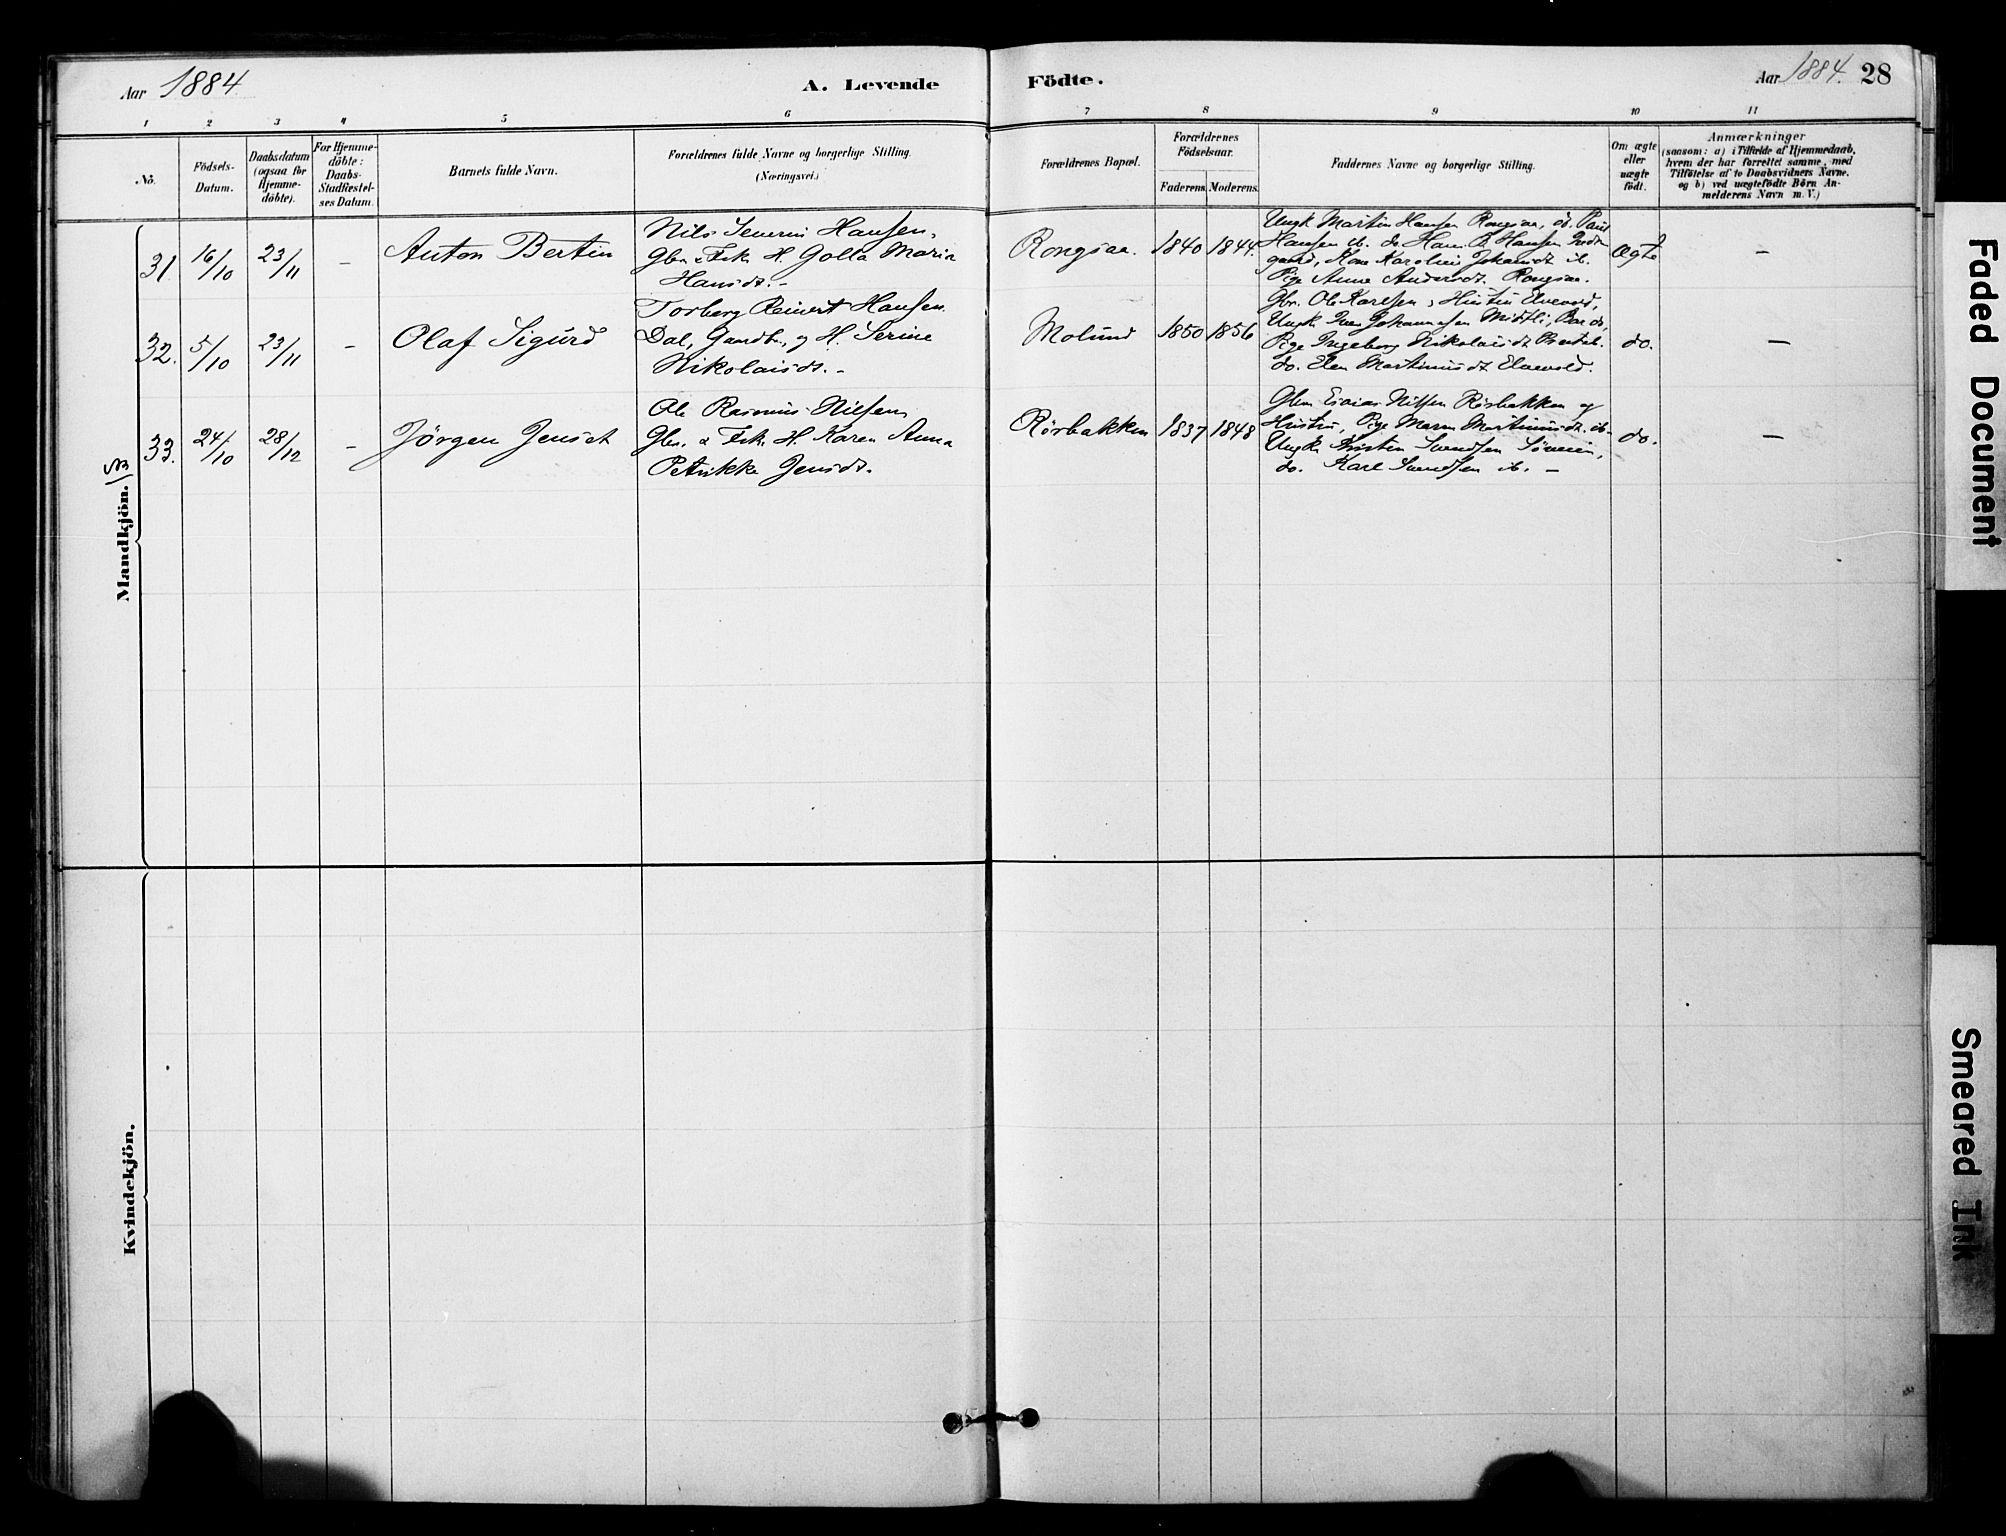 Aar 1884
A. Levende
Födte.
Aar 1884. 28
1 2 3 4 5 6 7 8 9 10 11
No.
Födsels-
Datum.
Daabsdatum
(ogsaa for
Hjemme-
döbte).
For Hjemme-
döbte:
Daabs-
Stadfæstel-
ses Datum.
Barnets fulde Navn.
Forældrenes fulde Navne og borgerlige Stilling.
(Næringsvei.)
Forældrenes Bopæl.
Forældrenes
Födselsaar.
Faderens. Moderens.
Faddernes Navne og borgerlige Stilling.
Om ægte
eller
uægte
födt.
Anmærkninger
(saasom: a) i Tilfælde af Hjemmedaab,
hvem der har forrettet samme, med
Tilföielse af to Daabsvidners Navne,
og b) ved uægtefödte Börn An-
melderens Navn m. V.)
Mandkjön.
31. 16/10 23/11 - Anton Bertin
Nils Severin Hansen,
Gbr. & Fisk. H. Golla Maria
Hansdt. -
Rongsaa. 1840 1844.
Ungk Martin Hansen Rongsaa, do. Paul
Hansen ib. do. Hans B. Hansen
gaard, Kone Karolini Johansdt ib.
Pige Anne Andersdt. Rongsaa.
Ægte -
32. 5/10 23/11 - Olaf Sigurd
Torberg Reinert Hansen
Dal, Gaardbr., og H. Serine
Nikolaisdt. -
Molund 1850 1856
Gbr. Ole Karlsen & Hustru Elvevold,
Ungk. Johannesen Midtli,
Pige Ingeborg Nikolaisdt
do. Elen Martinusdt Elvevold.
do. -
33. 24/10 28/12 - Jörgen Jenset
Ole Rasmus Nilsen
Gbr. & Fisk. H. Karen Anna
Petrikke Jensdt.
Rörbakken 1837 1848
Gbr. Esaias Nilsen Rörbakken og
Hustru, Pige Maren Martinusdt. ib.
Ungk. Kristen Svendsen
do. Karl Svendsen ib. -
do. -
Kvindekjön.
Faded Document
Smeared Ink